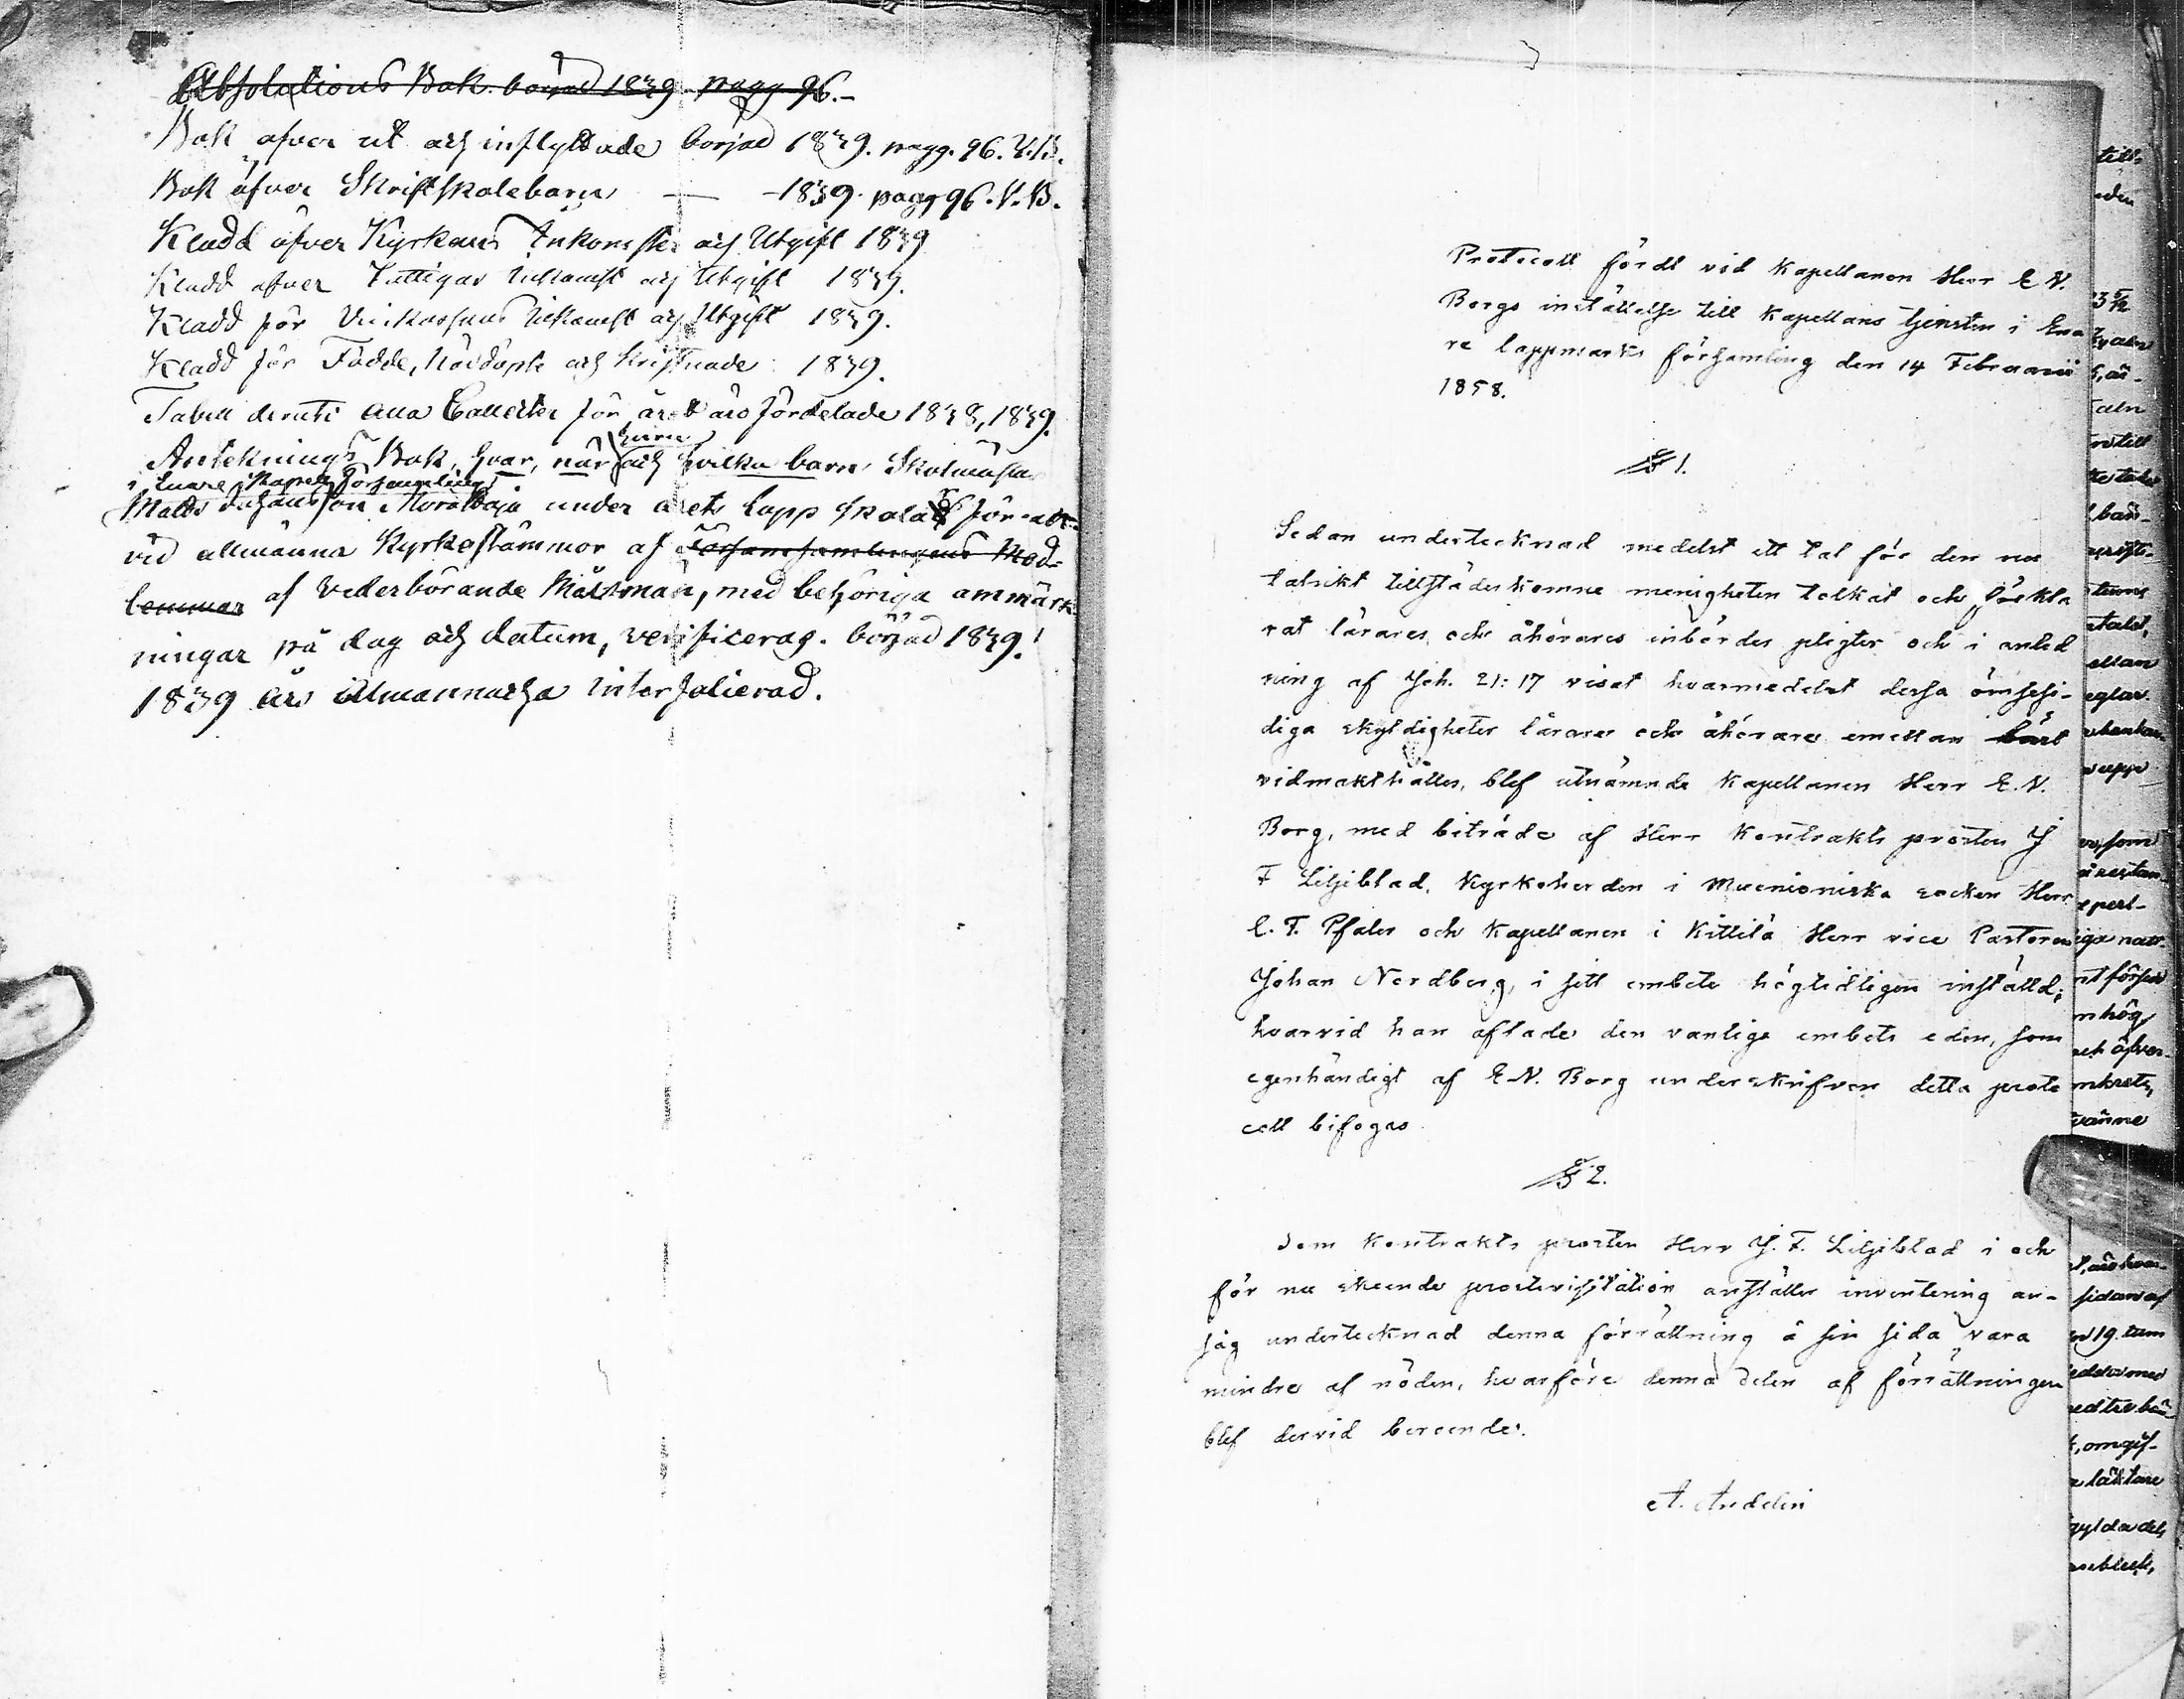 Absolutions Bok. börjad 1839 pagg 96.-
Bok öfver ut och inflyttade börjad 1839. pagg. 96. V.B.
Bok öfver Skriftskolebarn — -1839. pagg 96. V.B.
Kladd öfver Kyrkans Inkomster och Utgift 1839
Kladd öfver Fattigas Inkomst och Utgift 1839.
Kladd för Inkomst och Utgift 1839.
Kladd för Födde, Nöddöpte och Kristnade 1839.
Tabell deruti alla Collecter för året äro fördelade 1838, 1839.
huru
Antecknings Bok, hvar, när och hvilka barn Skolmästa
i Enare Kapells församling
Matts Johansson Morottaja under årets lopp skolat för att
vid allmänna Kyrkostämmor af Församsamlingens Med-
lemmar af vederbörande Målsmän, med behöriga anmärk
ningar på dag och datum, verificeras. börjad 1839.
1839 års Allmannacha interfolierad.
Protocoll fördt vid Kapellanen Herr E N.
Borgs inställelse till Kapellans tjensten i Ena
re lappmarks församling den 14 Februarii
1858.
§ 1.
Sedan undertecknad medelst ett tal för den nu
talrikt tillstädeskomne menigheten tolkat och förkla
rat lärares och åhörares inbördes pligter och i anled
ning af Joh. 21: 17 visat hvarmedelst dessa ömsesi-
diga skyldigheter lärare och åhörare emellan bäst
vidmakthålles, blef utnämnde Kapellanen Herr E. N.
Borg, med biträde af Herr Kontrakts prosten J
F Liljeblad, Kyrkoherden i Muonioniska socken Herr
C. F. Pfaler och Kapellanen i Kittilä Herr vice Pastoren
Johan Nordberg, i sitt embete högtidligen inställd;
hvarvid han aflade den vanlige embets eden, som
egenhändigt af E N. Borg underskrifven detta proto
coll bifogas
§ 2.
Som Kontrakts prosten Herr J. F. Liljeblad i och
för nu skeende prostevisitation anställer inventering an-
såg undertecknad denna förrättning å sin sida vara
mindre af nöden, hvarföre denna delen af förrättningen
blef dervid beroende.
A. Andelin